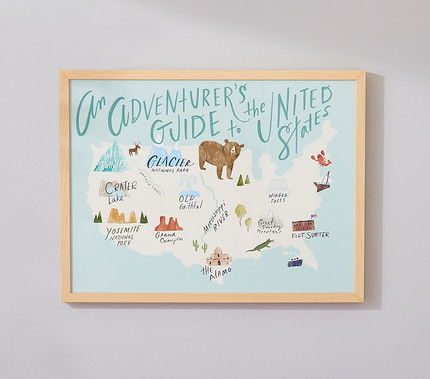 An ADVENTURER'S
GUIDE to the UNITED
States
MT. RAINIER
GLACIER
NATIONAL PARK
CRATER
Lake
OLD
Faithful
NIAGRA
FALLS
MISSISSIPPI
RIVER
YOSEMITE
NATIONAL
PARK
Grand
Canyon
Great
Smoky
Mountains
FORT SUMTER
THE
ALAMO